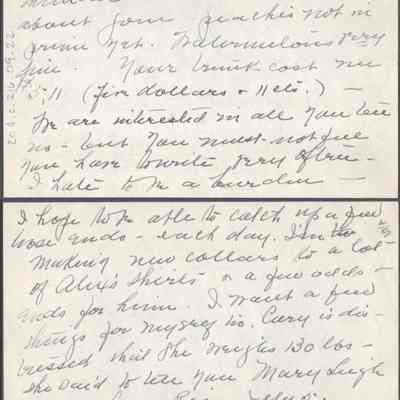 about four peaches not in
prime yet. Watermelons very
fine. Your trunk cost me
$5.11 (Five dollars + 11 cts.) —
We are interested in all you tell
us — but you must not feel
you have to write very often —
I hate to be a burden —
I hope to be able to catch up a few
loose ends — each day. I'm
making new collars to a lot
of Alex's shirts & a few odds &
ends for him. I want a few
things for myself too. Cary is dis-
tressed that she weighs 130 lbs —
she said to tell you Mary Leigh
204.C216.09.22